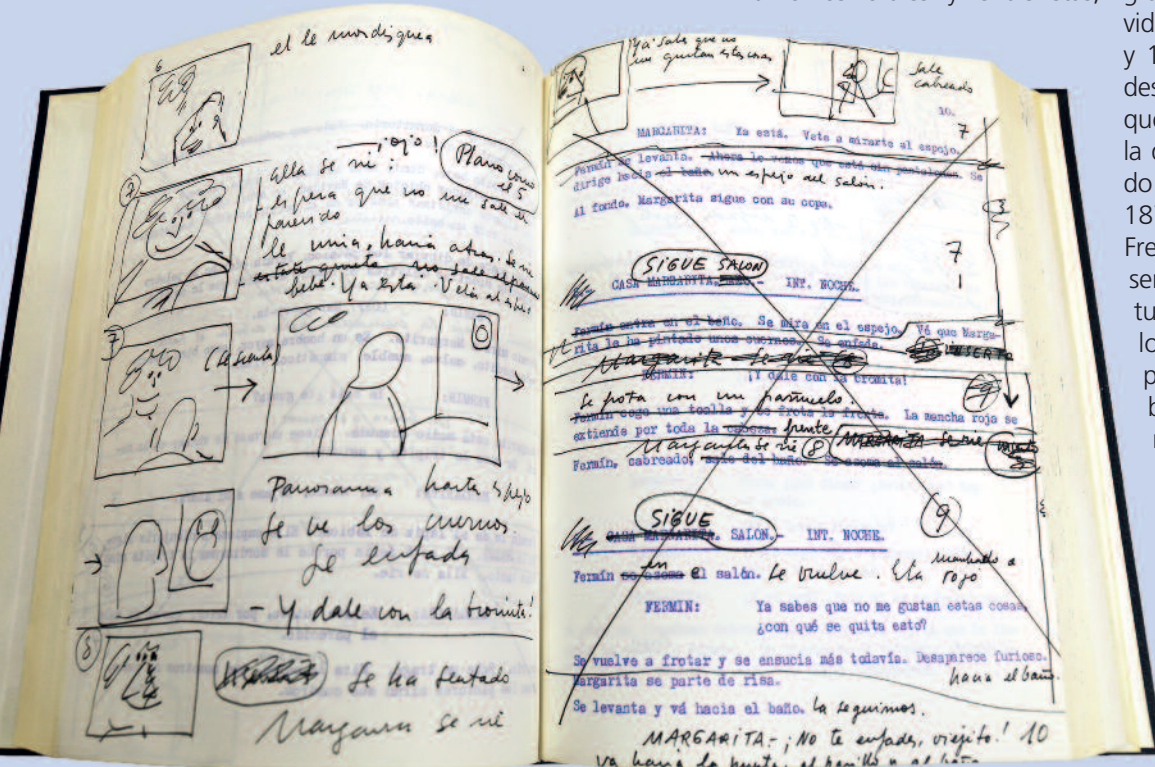 6
el le mordisquea
¡ojo!
Plano como
el 5
7
ella se ríe:
- espera que no me sale el
parecido
le mira, hacia atras. Se ríe
- estate quieto
bebé. Ya esta. Vete al espejo
7
(se levanta)
Panoramica hasta espejo
Se ve los cuernos
Se enfada
- Y dale con la bromita!
8
Se ha sentado
Margarita se ríe
Ya sabes que no
me gustan estas cosas
Sale
cabreado
10.
7
MARGARITA: Ya está. Vete a mirarte al espejo.
Fermín se levanta. Ahora le vemos que está sin pantalones. Se
dirige hacia el baño un espejo del salón.
Al fondo. Margarita sigue con su copa.
7
SIGUE SALON
CASA MARGARITA. BAÑO.- INT. NOCHE.
Fermín entra en el baño. Se mira en el espejo. Vé que Marga-
rita le ha pintado unos cuernos. Se enfada.
INSERTO
Margarita se ríe 8
FERMIN: ¡Y dale con la bromita!
9
Se frota con un pañuelo.
Fermín coge una toalla y se frota la frente. La mancha roja se
extiende por toda la cabeza. frente
Margarita se ríe 8 MARGARITA se ríe
Fermín, cabreado, sale del baño. Se asoma al salón.
9
SIGUE
CASA MARGARITA. SALON.- INT. NOCHE.
Fermín se asoma en el salón. Se vuelve. Esta manchado a rojo
FERMIN: Ya sabes que no me gustan estas cosas,
¿con qué se quita esto?
Se vuelve a frotar y se ensucia más todavía. Desaparece furioso.
hacia el baño.
Margarita se parte de risa.
Se levanta y vá hacia el baño. La seguimos.
MARGARITA - ¡No te enfades, viejito! 10
va hacia la puerta, el pasillo y al baño
vid
y 1
des
que
la c
do
18
Fre
ser
tu
lo
p
b